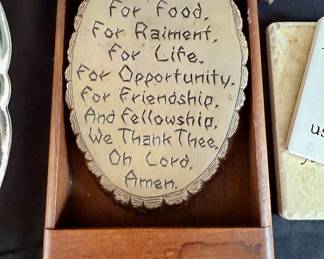 For Food,
For Raiment,
For Life,
For Opportunity,
For Friendship,
And Fellowship,
We Thank Thee,
Oh Lord,
Amen.